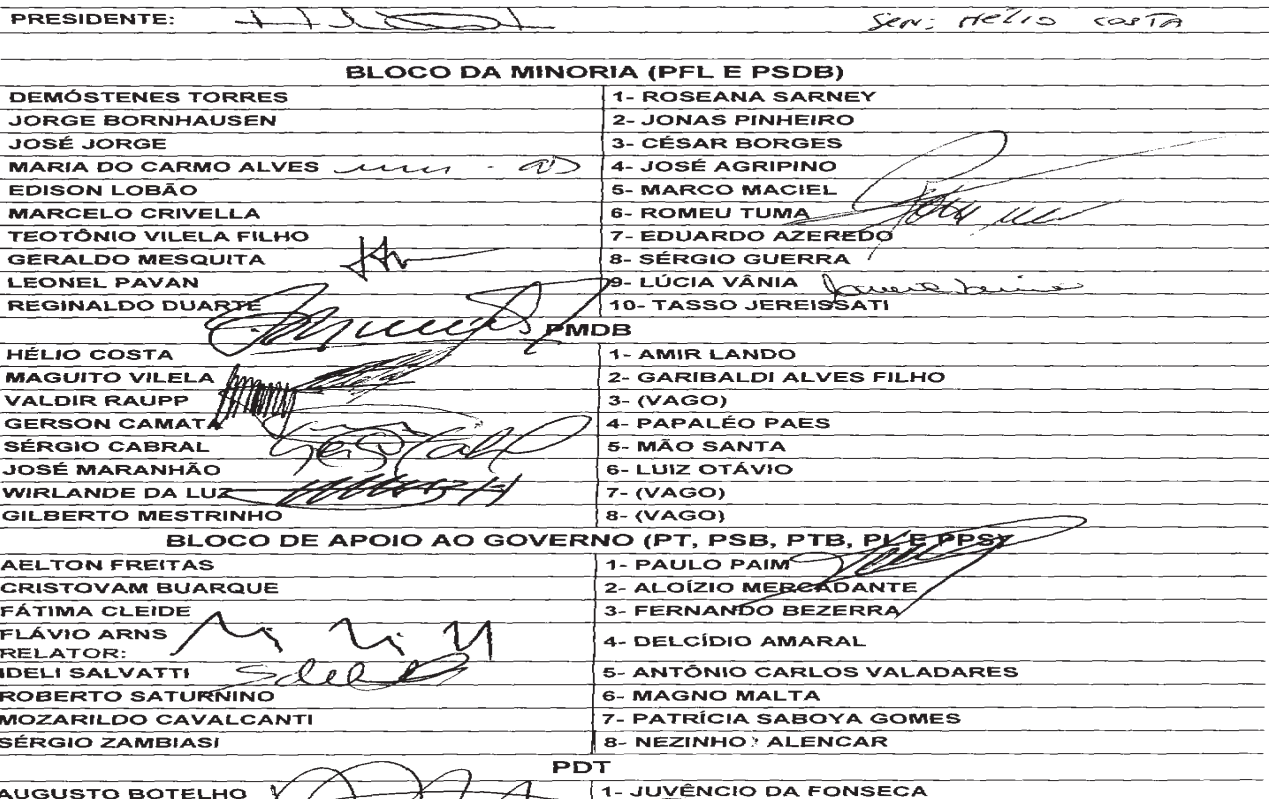 PRESIDENTE: Sen: Hélio Costa
BLOCO DA MINORIA (PFL E PSDB)
DEMÓSTENES TORRES 1- ROSEANA SARNEY
JORGE BORNHAUSEN 2- JONAS PINHEIRO
JOSÉ JORGE 3- CÉSAR BORGES
MARIA DO CARMO ALVES 4- JOSÉ AGRIPINO
EDISON LOBÃO 5- MARCO MACIEL
MARCELO CRIVELLA 6- ROMEU TUMA
TEOTÔNIO VILELA FILHO 7- EDUARDO AZEREDO
GERALDO MESQUITA 8- SÉRGIO GUERRA
LEONEL PAVAN 9- LÚCIA VÂNIA
REGINALDO DUARTE 10- TASSO JEREISSATI
PMDB
HÉLIO COSTA 1- AMIR LANDO
MAGUITO VILELA 2- GARIBALDI ALVES FILHO
VALDIR RAUPP 3- (VAGO)
GERSON CAMATA 4- PAPALÉO PAES
SÉRGIO CABRAL 5- MÃO SANTA
JOSÉ MARANHÃO 6- LUIZ OTÁVIO
WIRLANDE DA LUZ 7- (VAGO)
GILBERTO MESTRINHO 8- (VAGO)
BLOCO DE APOIO AO GOVERNO (PT, PSB, PTB, PL E PPS)
AELTON FREITAS 1- PAULO PAIM
CRISTOVAM BUARQUE 2- ALOÍZIO MERCADANTE
FÁTIMA CLEIDE 3- FERNANDO BEZERRA
FLÁVIO ARNS
RELATOR: 4- DELCÍDIO AMARAL
IDELI SALVATTI 5- ANTÔNIO CARLOS VALADARES
ROBERTO SATURNINO 6- MAGNO MALTA
MOZARILDO CAVALCANTI 7- PATRÍCIA SABOYA GOMES
SÉRGIO ZAMBIASI 8- NEZINHO ALENCAR
PDT
AUGUSTO BOTELHO 1- JUVÊNCIO DA FONSECA